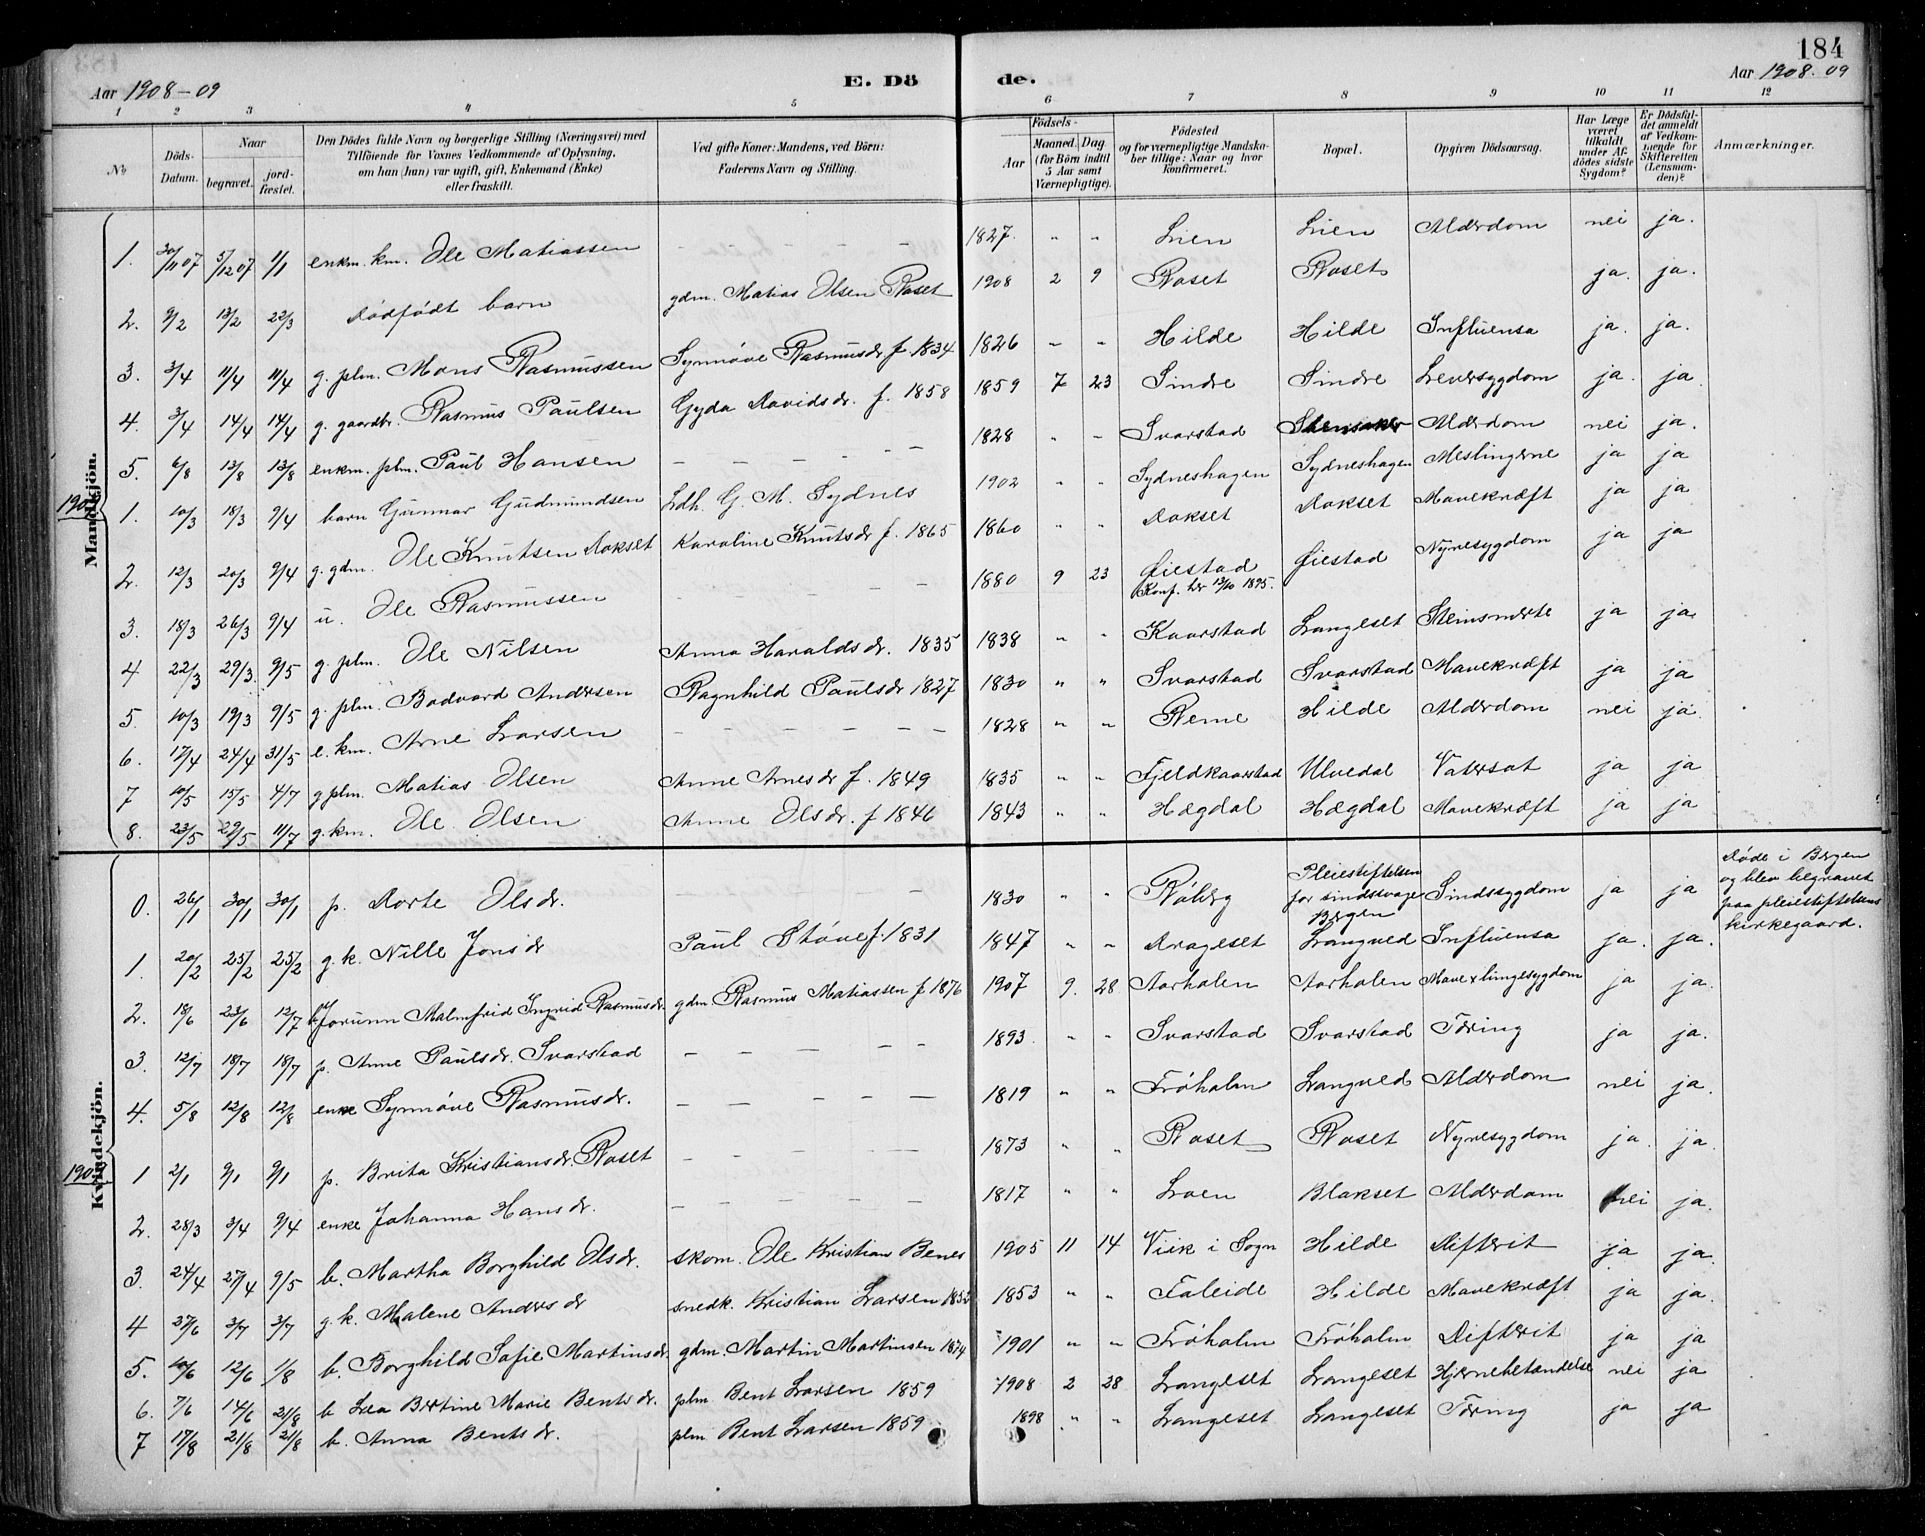 184
Aar 1908-09
E. Dö
de.
Aar 1908.09
1 2 3 4 5 6 7 8 9 10 11 12
No
Döds-Datum.
Naar
begravet.
jord-fæstet.
Den Dödes fulde Navn og borgerlige Stilling (Næringsvei) med
Tilföiende for Voxnes Vedkommende af Oplysning,
om han (hun) var ugift, gift, Enkemand (Enke)
eller fraskilt.
Ved gifte Koner: Mandens, ved Börn:
Faderens Navn og Stilling.
Födsels-
Aar
Maaned. Dag
(for Börn indtil
5 Aar samt
Værnepligtige).
Födested
og for værnepligtige Mandska-
ber tillige: Naar og hvor
konfirmeret.
Bopæl.
Opgiven Dödsaarsag.
Har Læge
været
tilkaldt
under Af-
dödes sidste
Sygdom?
Er Dödsfal-
det anmeldt
af Vedkom-
mende for
Skifteretten
(Lensman-
den)?
Anmærkninger.
Mandkjön.
1. 30/11 07 5/12 07 1/1 enkm. km. Ole Matiassen – – – – 1827. " " Lien Lien Alderdom nei ja.
2. 9/2 13/2 22/3 Dødfødt barn gdm. Matias Olsen Roset 1908 2 9 Roset Roset ja. ja.
3. 3/4 11/4 11/4 g. plm. Mons Rasmussen Synnøve Rasmusdr f 1834 1826 " " Hilde Hilde Influensa ja. ja.
4. 3/4 14/4 14/4 g. gaardbr. Rasmus Paulsen Gyda Davidsdr. f. 1858 1859 7 23 Sindre Sindre Leversygdom ja. ja.
5. 6/8 13/8 13/8 enkm. plm. Paul Hansen – – – – – 1828 " " Svarstad Stensaker Alderdom nei ja.
1. 10/3 18/3 9/4 barn Gunnar Gudmundsen Ldh. G. M. Sydnes 1902 " " Sydneshagen Sydneshagen Meslingerne ja ja
2. 12/3 20/3 9/4 g. gdm. Ole Knutsen Dokset Karoline Knutsdr f. 1865 1860 " " Dokset Dokset Mavekræft ja ja
3. 18/3 26/3 9/4 u. Ole Rasmussen – – – – – 1880 9 23 Øiestad Øiestad Nyresygdom ja ja
Konf. her 13/10 1895.
4 22/3 29/3 9/5 g. plm. Ole Nilsen Anna Haraldsdr. 1835 1838 " " Kaarstad Langeset Steinsmerte ja ja.
5. 10/3 19/3 9/5 g. plm. Bodvard Andersen Ragnhild Paulsdr 1827 1830 " " Svarstad Svarstad Mavekræft ja ja
6. 17/4 24/4 31/5 e. km. Arne Larsen – – – – – – 1828 " " Reme Hilde Alderdom nei ja.
7 10/5 15/5 4/7 g plm. Matias Olsen Anne Arnesdr f. 1849 1835 " " Fjeldkaarstad Ulvedal Vatersot ja ja
8. 23/5 29/5 11/7 g. km. Ole Olsen Anne Olsdr. f 1846 1843 " " Hægdal Hægdal Mavekræft ja ja
Kvindekjön.
0. 26/1 30/1 30/1 p. Dorte Olsdr. – – 1830 " " Røberg Pleiestiftelsen for sindssvage Bergen Sindssygdom ja ja Døde i Bergen
og blev begravet
paa pleiestiftelsens
kirkegaard.
1. 20/2 25/2 25/2 g. k. Nille Jonsdr Paul Støve f. 1831 1847 " " Drageset Langved Influensa ja. ja.
2. 18/6 23/6 12/7 b Jorunn Malmfrid Ingrid Rasmusdr. gdm Rasmus Matiassen f 1876 1907 9. 28 Aarholen Aarholen Mave x lungesygdom ja ja.
3. 12/7 18/7 18/7 p. Anne Paulsdr. Svarstad – – – – – 1893. " " Svarstad Svarstad Tæring ja ja.
4. 5/8 12/8 12/8 enke Synnøve Rasmusdr. – – – – – 1819 " " Frøholm Langved Alderdom nei ja.
1 2/1 9/1 9/1 p. Brita Kristiansdr. Roset – – – – – 1873 " " Roset Roset Nyresygdom ja. ja.
2. 28/3 3/4 9/4 enke Johanna Hansdr. – – – – – 1817 " " Loen Blakset Alderdom nei ja.
3. 24/4 27/4 9/5 b. Martha Borghild Olsdr. skom. Ole Kristian Benes 1905 11 14 Viik i Sogn Hilde Difterit ja ja.
4 27/6 3/7 3/7 g. k. Malene Andersdr snedk. Kristian Larsen 1853 " " Faleide Hilde Mavekræft ja ja.
5. 10/6 12/6 1/8 b. Borghild Sofie Martinsdr. gdm. Martin Martinsen 1874 1901 " " Frøholm Frøholm Difterit ja ja
6. 7/6 14/6 21/8 b Lea Bertine Marie Bentsdr. plm Bent Larsen 1859 1908 2 28 Langeset Langeset Hjernebetændelse nei ja
7 17/8 21/8 21/8 b. Anna Bentsdr. plm. Bent Larsen 1859 1898 " " Langeset Langeset Tæring ja ja